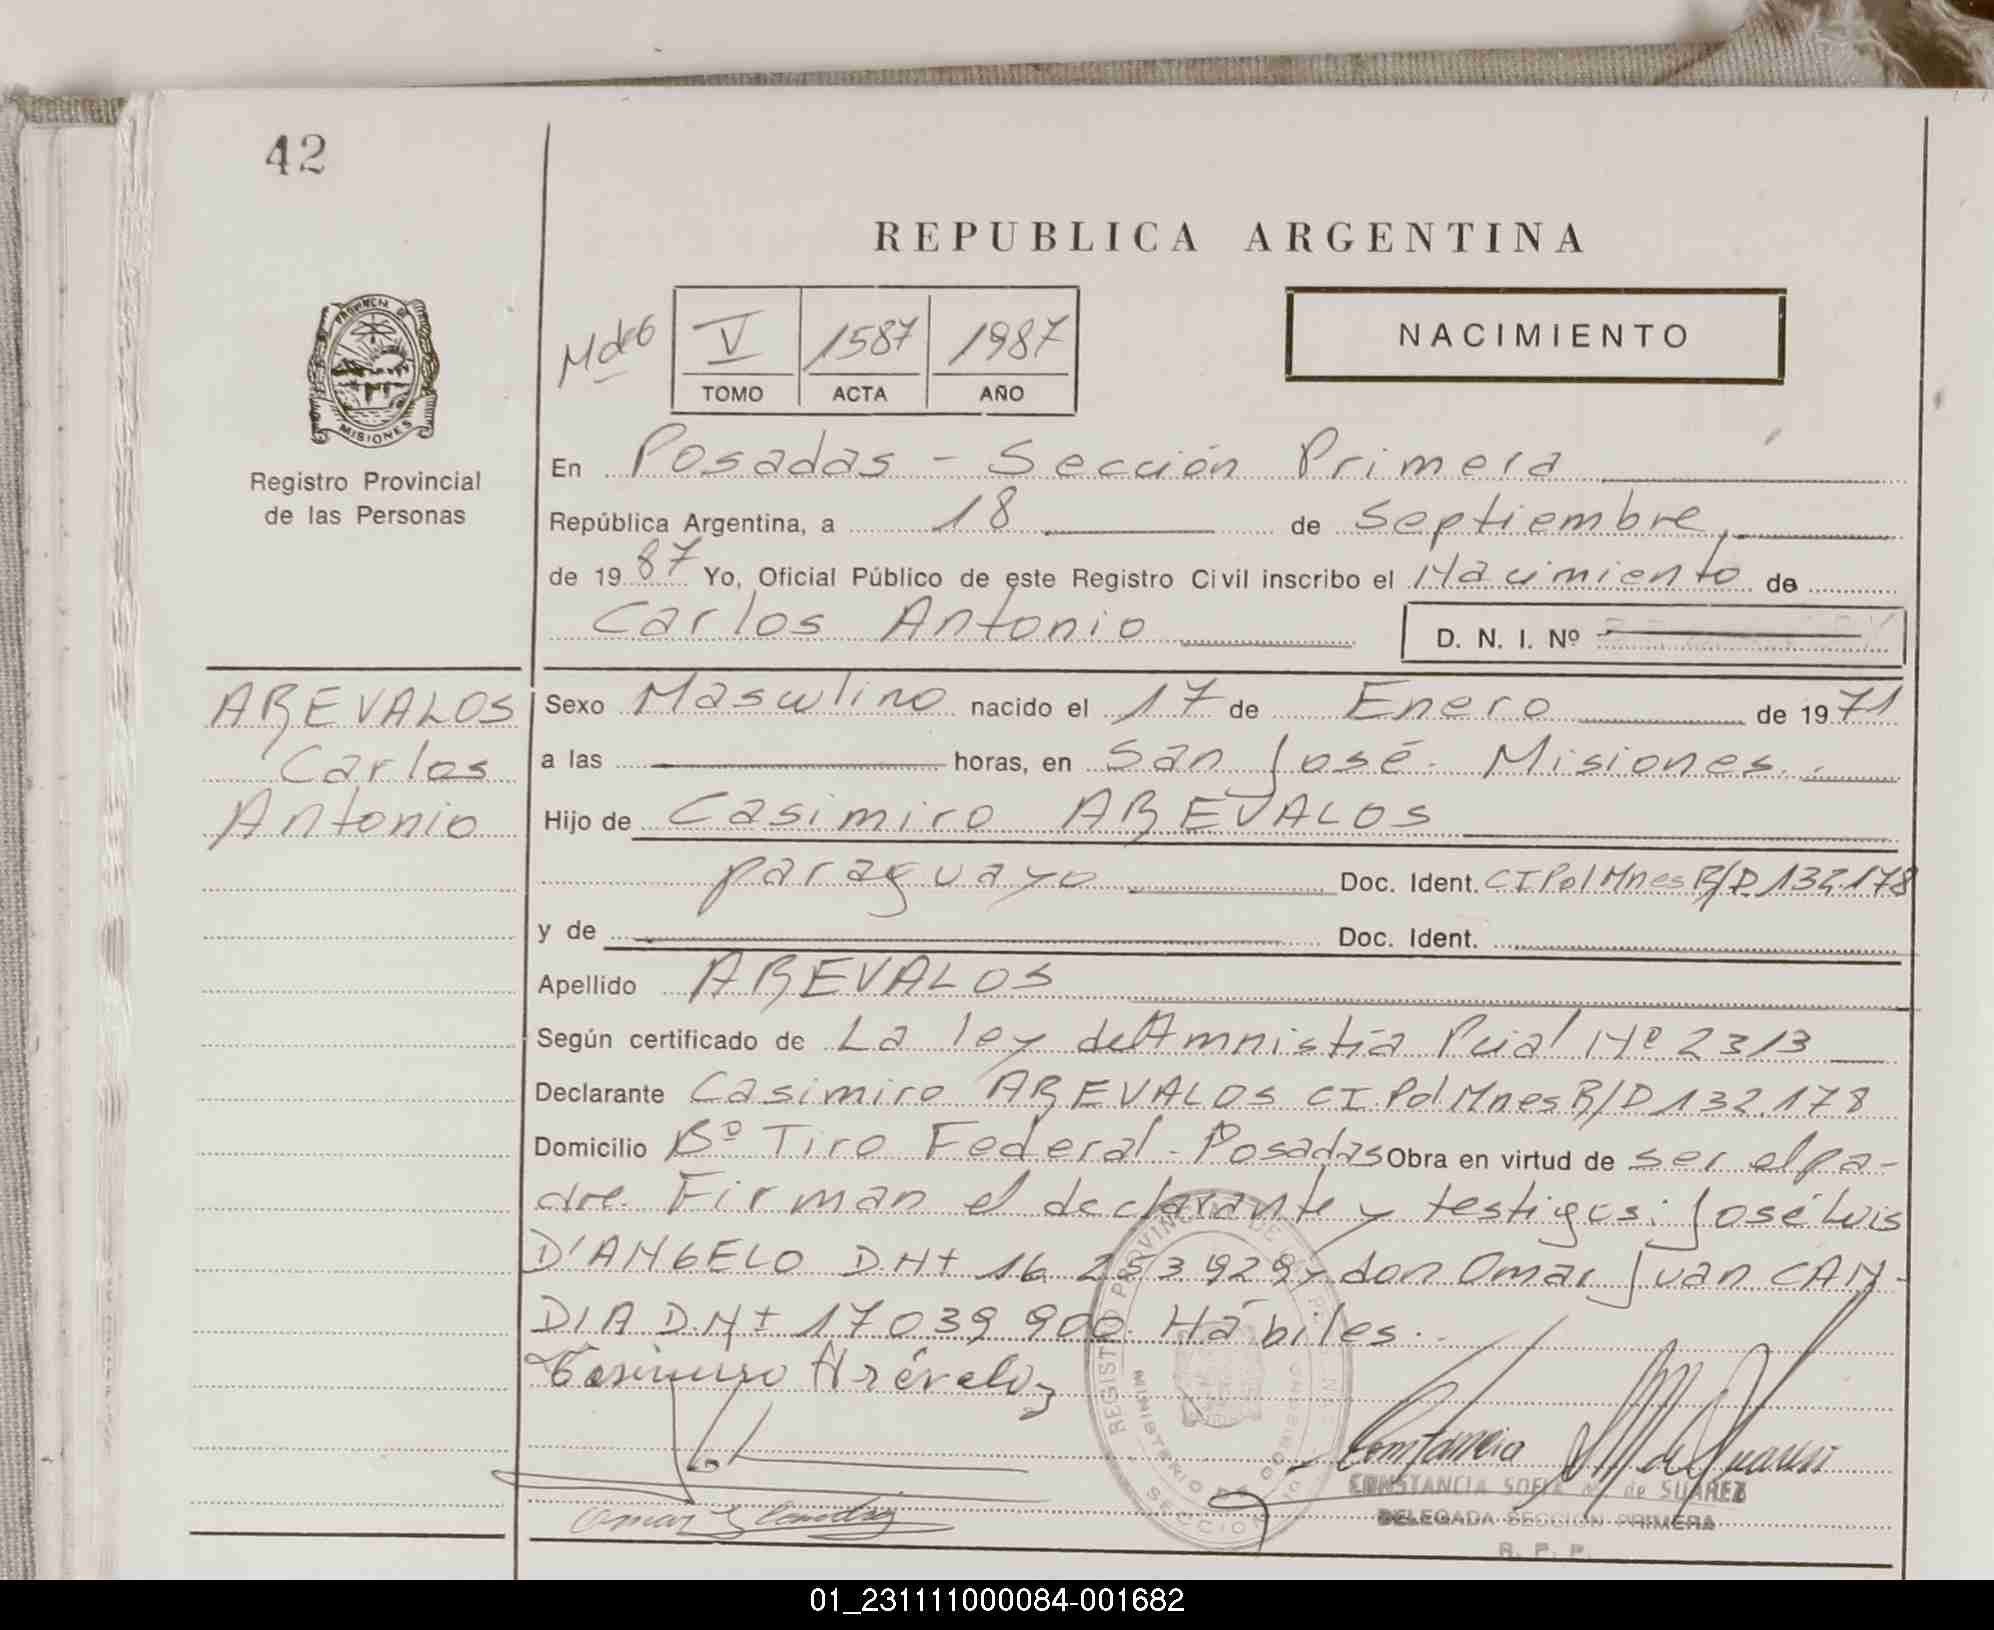 42
REPUBLICA ARGENTINA
NACIMIENTO
V 1587 1987
TOMO ACTA AÑO
PROVINCIA DE
MISIONES
Registro Provincial
de las Personas
En Posadas - Sección Primera
República Argentina, a 18 de Septiembre,
de 1987 Yo, Oficial Público de este Registro Civil inscribo el Nacimiento de
Carlos Antonio D. N. I. Nº
AREVALOS
Carlos
Antonio
Sexo Masculino nacido el 17 de Enero de 1971
a las horas, en San José. Misiones.
Hijo de Casimiro AREVALOS
paraguayo Doc. Ident. CI Pol Mnes R/D 132.178
y de Doc. Ident.
Apellido AREVALOS
Según certificado de La ley de Amnistía Pcial Nº 2313
Declarante Casimiro AREVALOS CI. Pol Mnes R/D 132.178
Domicilio Bº Tiro Federal - Posadas Obra en virtud de ser el pa-
dre. Firman el declarante y testigos: José Luis
D'ANGELO DNI 16 253 929 y don Omar Juan CAN-
DIA D.NI 17 039 900. Hábiles.
Casimiro Arévalos
REGISTRO PROVINCIAL DE
MINISTERIO DE GOBIERNO
SECCION
CONSTANCIA SOFIA M. de SUAREZ
DELEGADA SECCION PRIMERA
R. P. P.
01_231111000084-001682